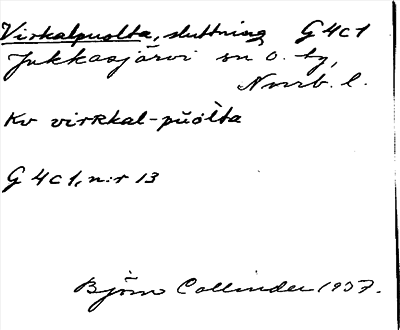 Virkalpuolta, sluttning G4c1
Jukkasjärvi sn o. tg,
Norrb. l.
Kv virkkal-pŭòlta
G 4c1, n:r 13
Björn Collinder 1937.